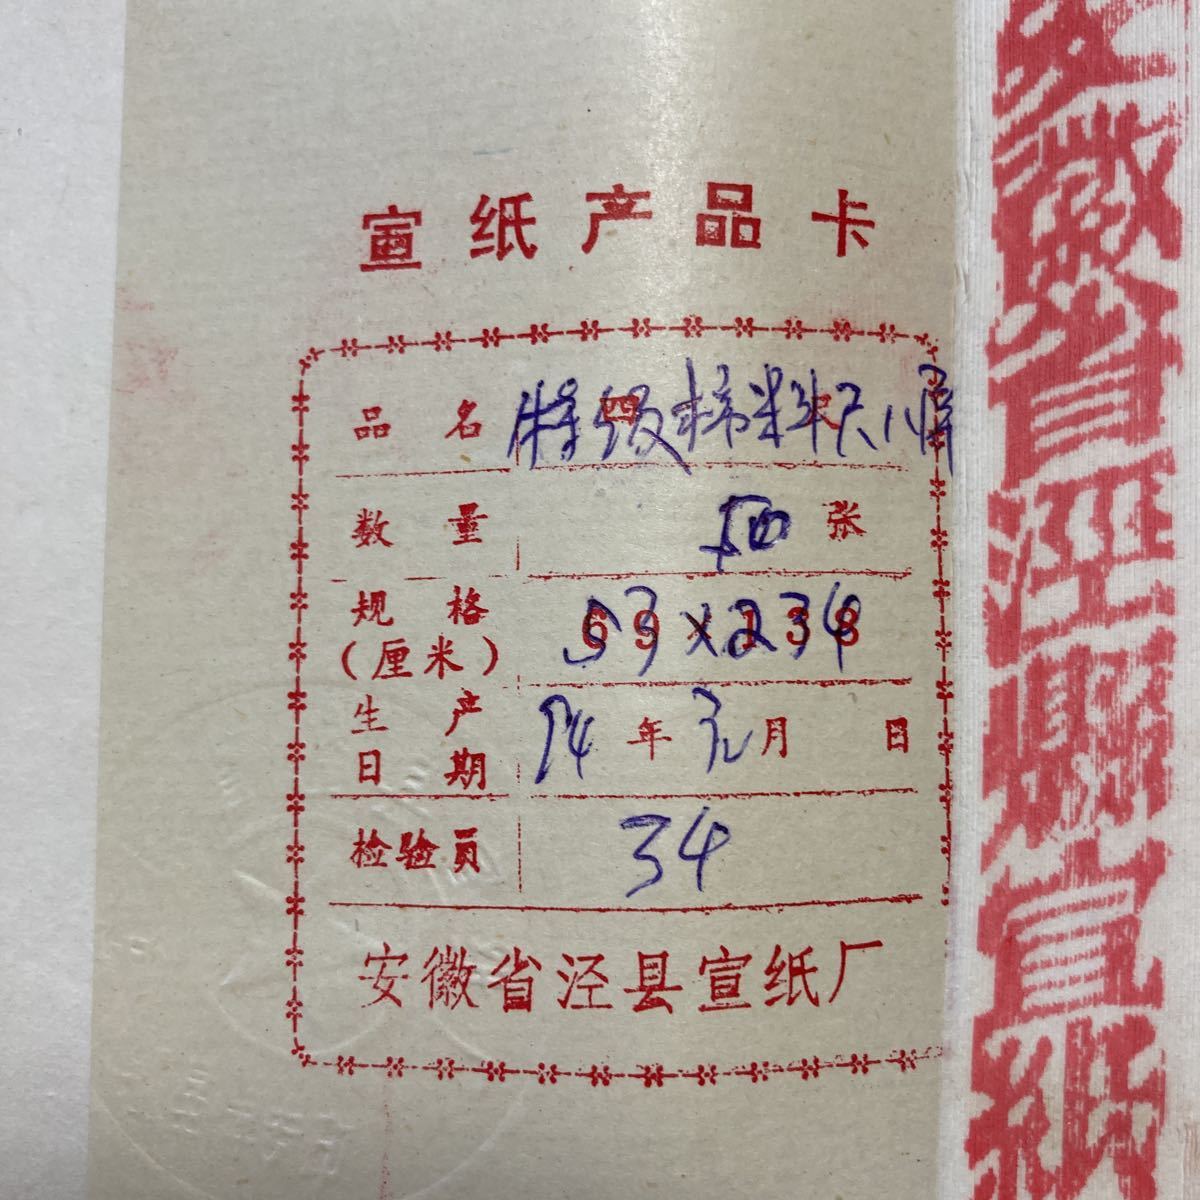 宣纸产品卡
品名 特级棉料尺八屏
数量 50 张
规格(厘米) 53×234
生产日期 94年元月 日
检验员 34
安徽省泾县宣纸厂
安徽省泾縣宣纸